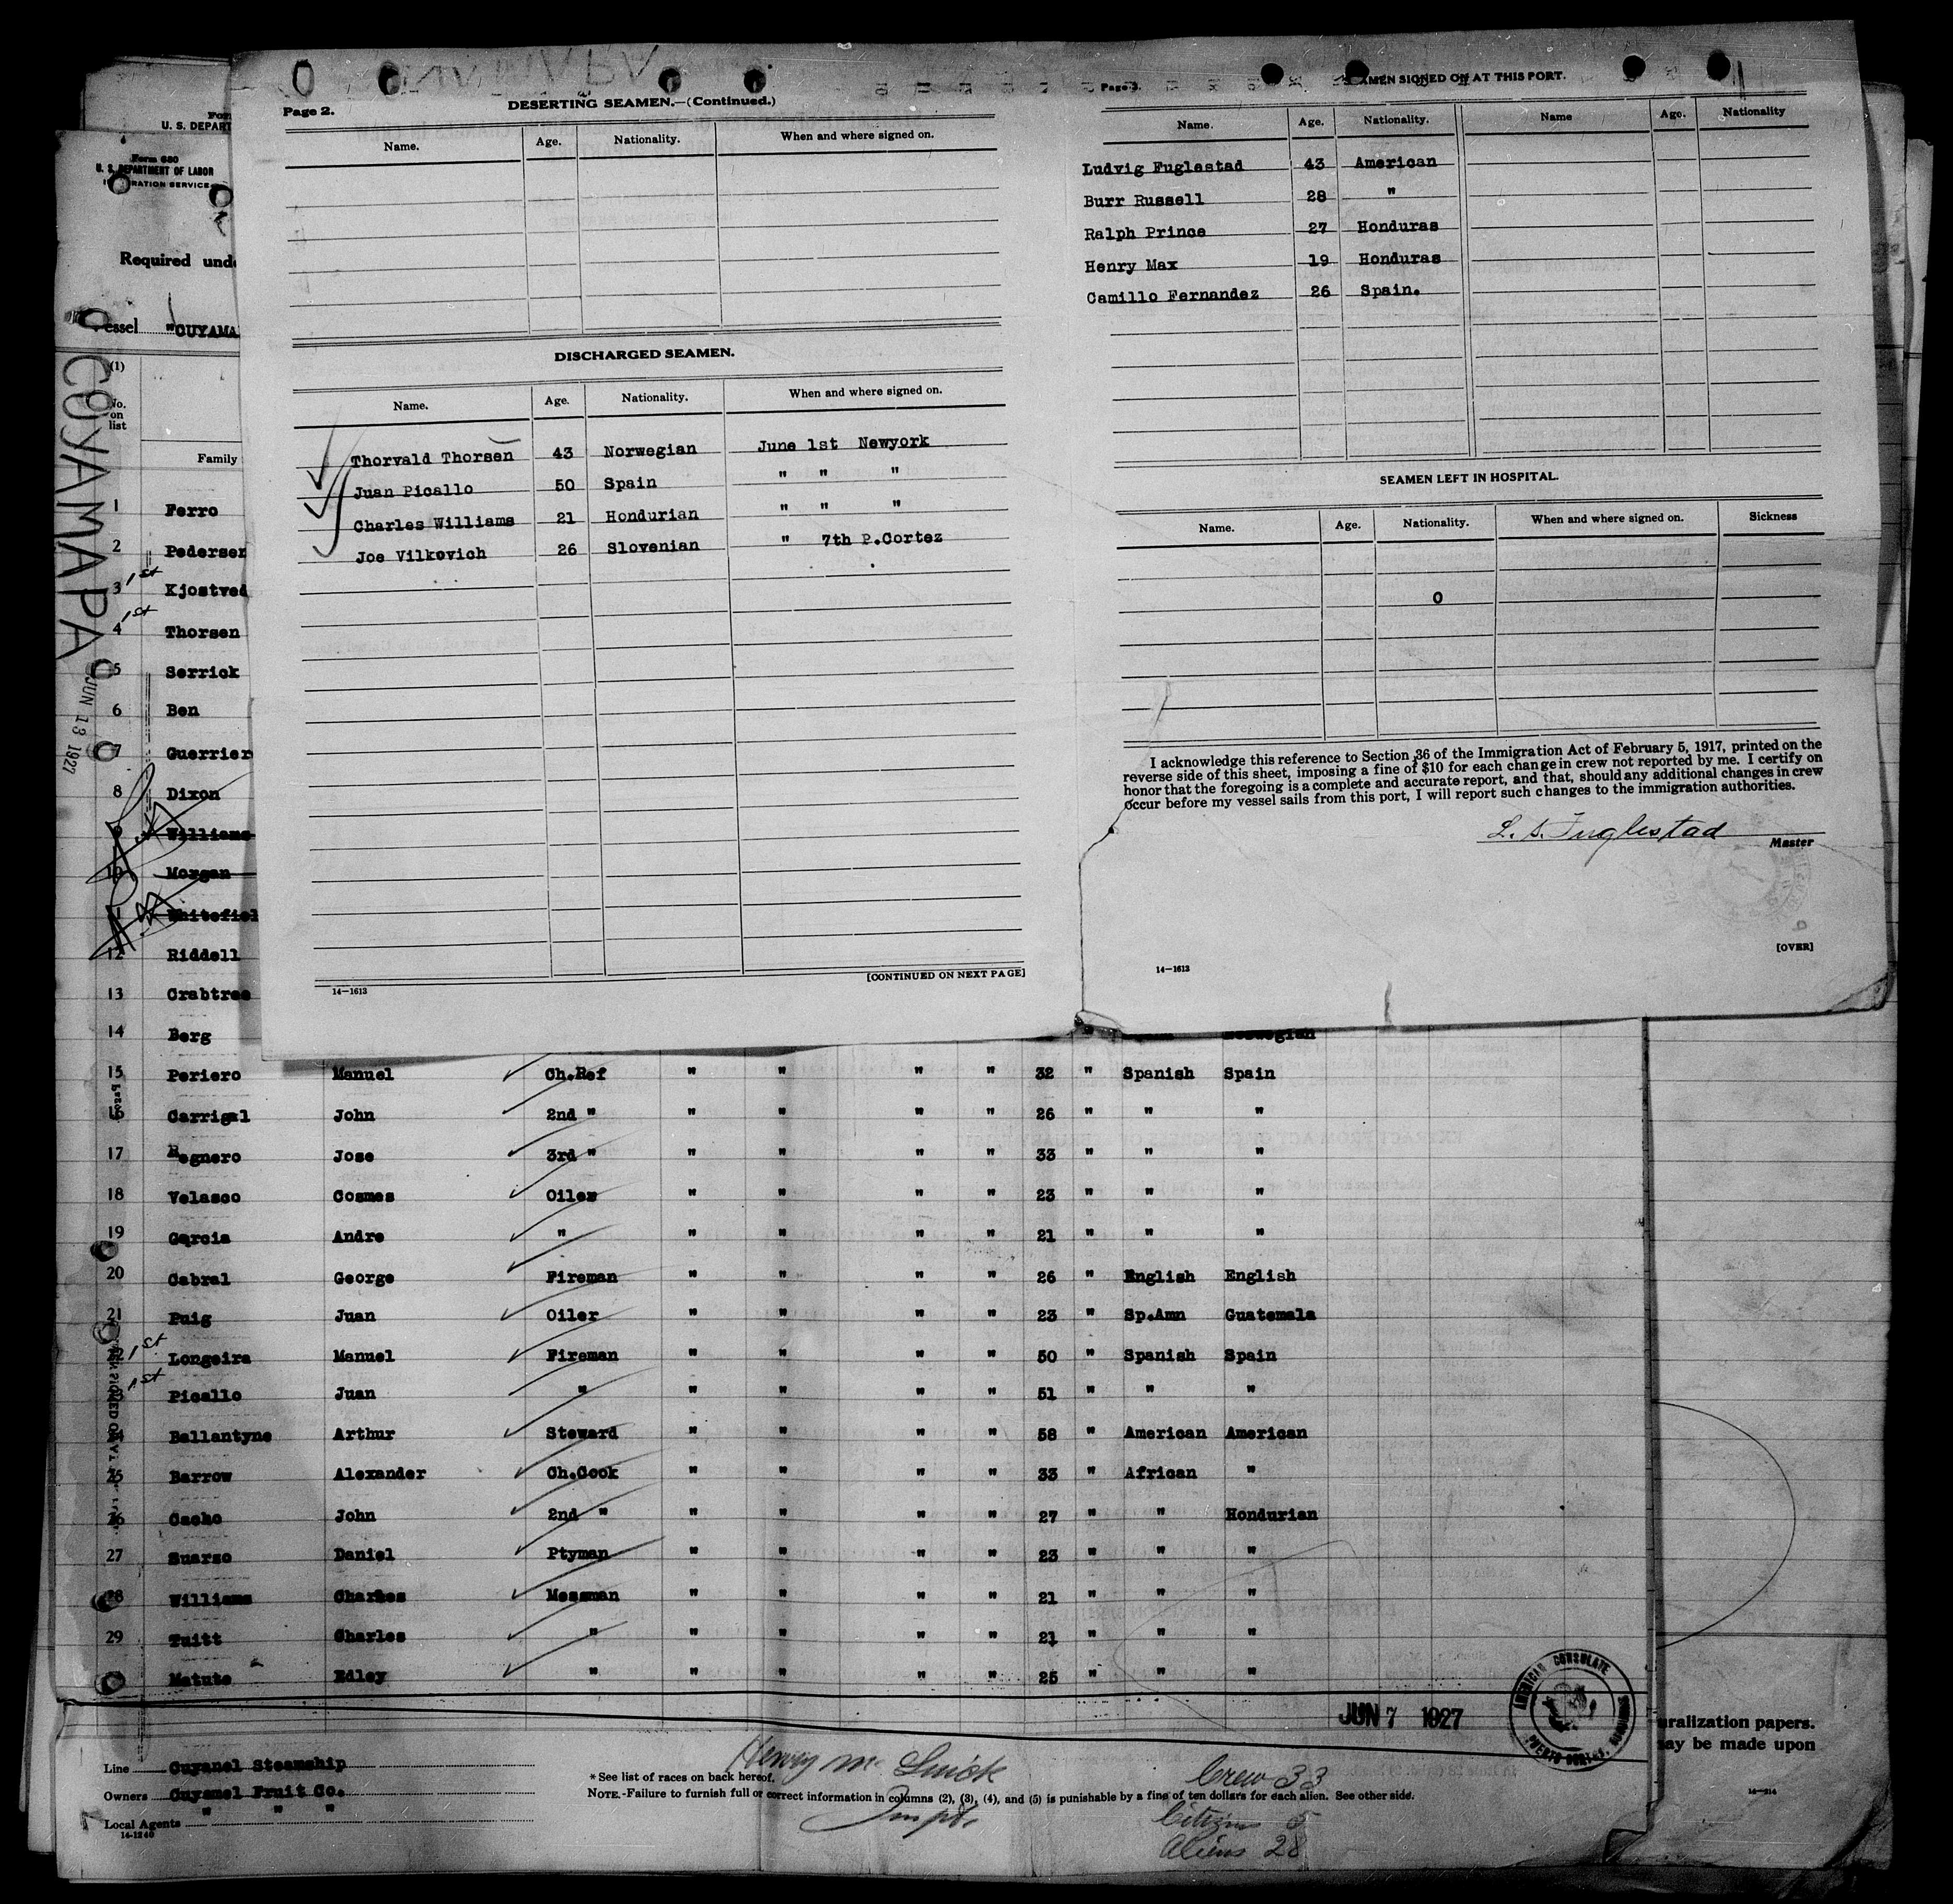 Page 2.
DESERTING SEAMEN.—(Continued.)
Name. Age. Nationality. When and where signed on.
DISCHARGED SEAMEN.
Name. Age. Nationality. When and where signed on.
Thorvald Thorsen 43 Norwegian June 1st Newyork
Juan Picallo 50 Spain " " "
Charles Williams 21 Hondurian " " "
Joe Vilkovich 26 Slovenian " 7th P.Cortez
[CONTINUED ON NEXT PAGE]
14—1613
Page 3.
SEAMEN SIGNED ON AT THIS PORT.
Name. Age. Nationality. Name Age. Nationality
Ludvig Fuglestad 43 American
Burr Russell 28 "
Ralph Prince 27 Honduras
Henry Max 19 Honduras
Camillo Fernandez 26 Spain.
SEAMEN LEFT IN HOSPITAL.
Name. Age. Nationality. When and where signed on. Sickness
0
I acknowledge this reference to Section 36 of the Immigration Act of February 5, 1917, printed on the
reverse side of this sheet, imposing a fine of $10 for each change in crew not reported by me. I certify on
honor that the foregoing is a complete and accurate report, and that, should any additional changes in crew
occur before my vessel sails from this port, I will report such changes to the immigration authorities.
L. S. Fuglestad
Master
[OVER]
14—1613
U. S. DEPART
Form 680
U. S. DEPARTMENT OF LABOR
Required und
Vessel "CUYAMA
COYAMAPA
JUN 13 1927
(1)
No.
on
list
Family
1 Ferro
2 Pedersen
3 1st Kjostved
4 1st Thorsen
5 Serrick
6 Ben
7 Guerrier
8 Dixon
9 Williams
10 Morgan
11 Whitefiel
12 Riddell
13 Crabtree
14 Berg Norwegian
15 Periero Manuel Ch.Ref " " " " 32 " Spanish Spain
16 Carrigal John 2nd " " " " " 26 " " "
17 Regnero Jose 3rd " " " " " 33 " " "
18 Velasco Cosmes Oiler " " " " 23 " " "
19 Garcia Andre " " " " " 21 " " "
20 Cabral George Fireman " " " " 26 " English English
21 Puig Juan Oiler " " " " 23 " Sp.Amn Guatemala
22 1st Longeira Manuel Fireman " " " " 50 " Spanish Spain
23 1st Picallo Juan " " " " " 51 " " "
24 Ballantyne Arthur Steward " " " " 58 " American American
25 Barrow Alexander Ch.Cook " " " " 33 " African "
26 Cacho John 2nd " " " " " 27 " " Hondurian
27 Suarzo Daniel Ptyman " " " " 23 " " "
28 Williams Charles Messman " " " " 21 " " "
29 Tuitt Charles " " " " " 21 " " "
Matute Edley " " " " " 25 " " "
JUN 7 1927
AMERICAN CONSULATE
PUERTO CORTES, HONDURAS
uralization papers.
ay be made upon
14—214
Line Cuyamel Steamship
Owners Cuyamel Fruit Co.
Local Agents " " "
14-1240
* See list of races on back hereof.
NOTE.-Failure to furnish full or correct information in columns (2), (3), (4), and (5) is punishable by a fine of ten dollars for each alien. See other side.
Henry M.
Inspt.
Crew 33
Citizens 5
Aliens 28